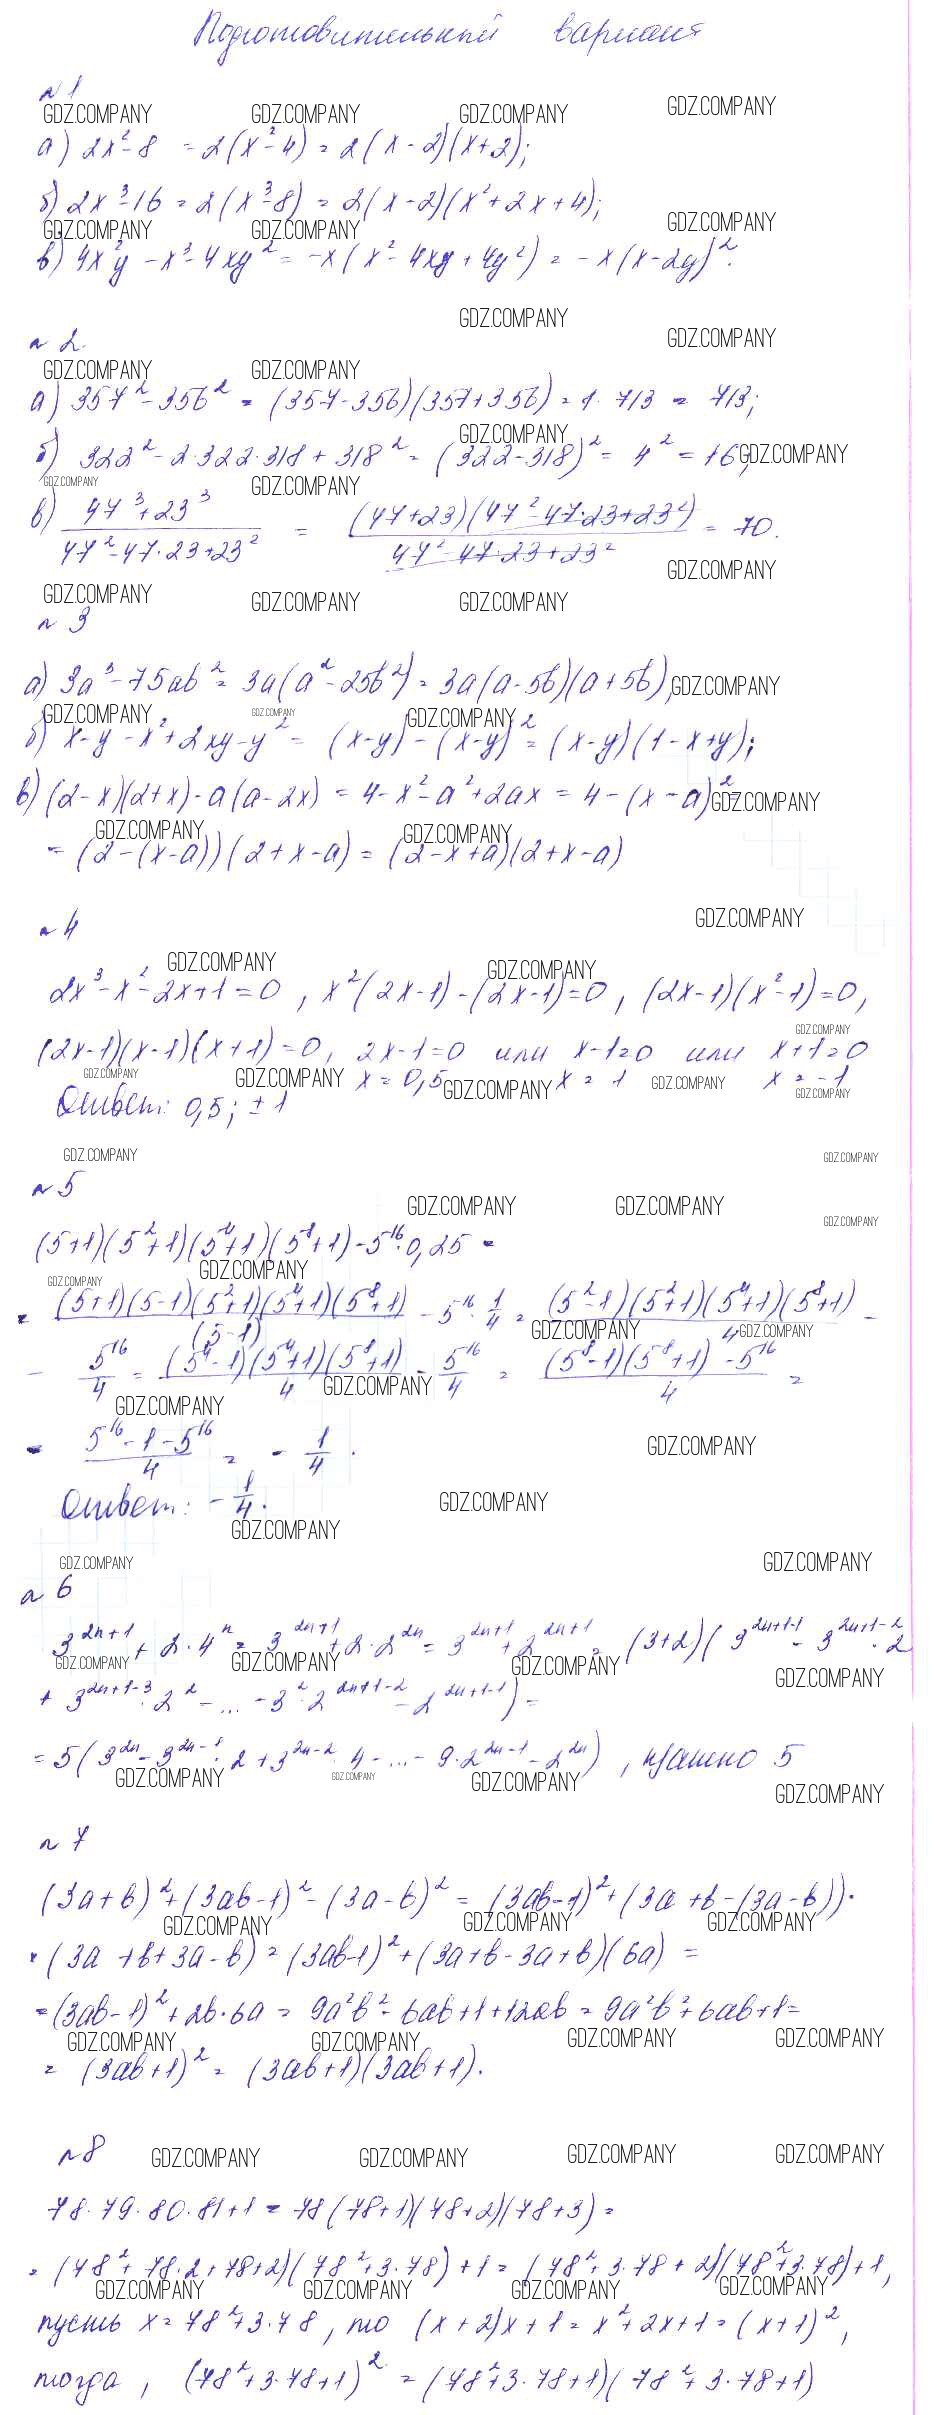 Подготовительный вариант
n 1
GDZ.COMPANY GDZ.COMPANY GDZ.COMPANY GDZ.COMPANY
а) 2x² - 8 = 2(x² - 4) = 2(x - 2)(x + 2);
б) 2x³ - 16 = 2(x³ - 8) = 2(x - 2)(x² + 2x + 4);
GDZ.COMPANY GDZ.COMPANY GDZ.COMPANY
в) 4x²y - x³ - 4xy² = -x(x² - 4xy + 4y²) = -x(x - 2y)².
GDZ.COMPANY GDZ.COMPANY
n 2.
GDZ.COMPANY GDZ.COMPANY
а) 357² - 356² = (357 - 356)(357 + 356) = 1 · 713 = 713;
GDZ.COMPANY
б) 322² - 2·322·318 + 318² = (322 - 318)² = 4² = 16; GDZ.COMPANY
GDZ.COMPANY GDZ.COMPANY
в) (47³ + 23³)/(47² - 47·23 + 23²) = (47 + 23)(47² - 47·23 + 23²)/(47² - 47·23 + 23²) = 70.
GDZ.COMPANY
GDZ.COMPANY GDZ.COMPANY GDZ.COMPANY
n 3
а) 3a³ - 75ab² = 3a(a² - 25b²) = 3a(a - 5b)(a + 5b); GDZ.COMPANY
GDZ.COMPANY GDZ.COMPANY GDZ.COMPANY
б) x - y - x² + 2xy - y² = (x - y) - (x - y)² = (x - y)(1 - x + y);
в) (2 - x)(2 + x) - a(a - 2x) = 4 - x² - a² + 2ax = 4 - (x - a)² =
GDZ.COMPANY
GDZ.COMPANY GDZ.COMPANY
= (2 - (x - a))(2 + x - a) = (2 - x + a)(2 + x - a)
n 4 GDZ.COMPANY
GDZ.COMPANY GDZ.COMPANY
2x³ - x² - 2x + 1 = 0, x²(2x - 1) - (2x - 1) = 0, (2x - 1)(x² - 1) = 0,
GDZ.COMPANY
(2x - 1)(x - 1)(x + 1) = 0, 2x - 1 = 0 или x - 1 = 0 или x + 1 = 0
GDZ.COMPANY GDZ.COMPANY x = 0,5 GDZ.COMPANY x = 1 GDZ.COMPANY x = -1
GDZ.COMPANY
Ответ: 0,5; ±1
GDZ.COMPANY GDZ.COMPANY
n 5
GDZ.COMPANY GDZ.COMPANY GDZ.COMPANY
(5+1)(5²+1)(5⁴+1)(5⁸+1) - 5¹⁶·0,25 =
GDZ.COMPANY GDZ.COMPANY
= (5+1)(5-1)(5²+1)(5⁴+1)(5⁸+1)/(5-1) - 5¹⁶·1/4 = (5²-1)(5²+1)(5⁴+1)(5⁸+1)/4 -
GDZ.COMPANY GDZ.COMPANY
- 5¹⁶/4 = (5⁴-1)(5⁴+1)(5⁸+1)/4 - 5¹⁶/4 = ((5⁸-1)(5⁸+1) - 5¹⁶)/4 =
GDZ.COMPANY GDZ.COMPANY
= (5¹⁶ - 1 - 5¹⁶)/4 = - 1/4.
GDZ.COMPANY
Ответ: - 1/4.
GDZ.COMPANY
GDZ.COMPANY
GDZ.COMPANY GDZ.COMPANY
n 6
3²ⁿ⁺¹ + 2·4ⁿ = 3²ⁿ⁺¹ + 2·2²ⁿ = 3²ⁿ⁺¹ + 2²ⁿ⁺¹ = (3+2)(3²ⁿ⁺¹⁻¹ - 3²ⁿ⁺¹⁻²·2
GDZ.COMPANY GDZ.COMPANY GDZ.COMPANY GDZ.COMPANY
+ 3²ⁿ⁺¹⁻³·2² - ... - 3²·2²ⁿ⁺¹⁻² - 2²ⁿ⁺¹⁻¹) =
= 5(3²ⁿ - 3²ⁿ⁻¹·2 + 3²ⁿ⁻²·4 - ... - 9·2²ⁿ⁻¹ - 2²ⁿ), кратно 5
GDZ.COMPANY GDZ.COMPANY GDZ.COMPANY GDZ.COMPANY
n 7
(3a + b)² + (3ab - 1)² - (3a - b)² = (3ab - 1)² + (3a + b - (3a - b))·
GDZ.COMPANY GDZ.COMPANY GDZ.COMPANY
· (3a + b + 3a - b) = (3ab - 1)² + (3a + b - 3a + b)(6a) =
= (3ab - 1)² + 2b·6a = 9a²b² - 6ab + 1 + 12ab = 9a²b² + 6ab + 1 =
GDZ.COMPANY GDZ.COMPANY GDZ.COMPANY GDZ.COMPANY
= (3ab + 1)² = (3ab + 1)(3ab + 1).
n 8 GDZ.COMPANY GDZ.COMPANY GDZ.COMPANY GDZ.COMPANY
78·79·80·81 + 1 = 78(78+1)(78+2)(78+3) =
= (78² + 78·2 + 78 + 2)(78² + 3·78) + 1 = (78² + 3·78 + 2)(78² + 3·78) + 1,
GDZ.COMPANY GDZ.COMPANY GDZ.COMPANY GDZ.COMPANY
пусть x = 78² + 3·78, то (x + 2)x + 1 = x² + 2x + 1 = (x + 1)²,
тогда, (78² + 3·78 + 1)² = (78² + 3·78 + 1)(78² + 3·78 + 1)